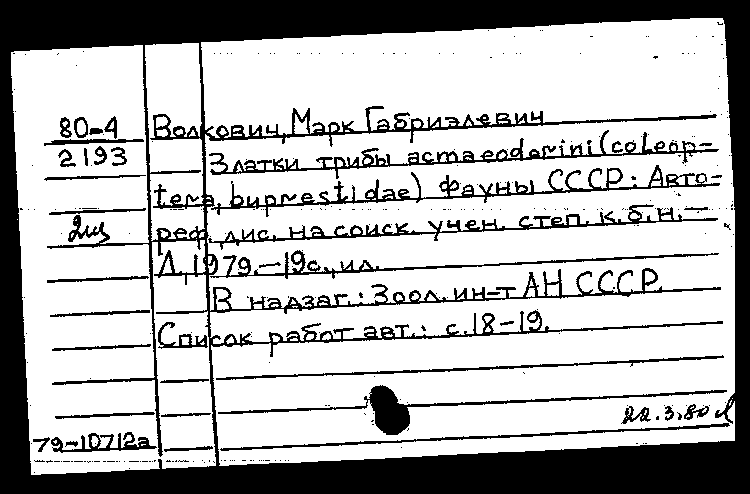 80-4 Волкович, Марк Габриэлевич
2193 Златки трибы acmaeoderini (coleop-
tera, buprestidae) фауны СССР: Авто-
реф. дис. на соиск. учен. степ. к.б.н. —
Л., 1979. — 19с., ил.
В надзаг.: Зоол. ин-т АН СССР.
Список работ авт.: с. 18-19.
22.3.80
79-10712а